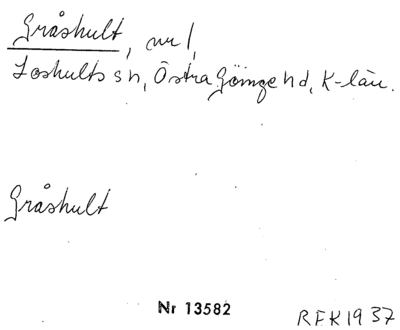 Gråshult, nr 1,
Loshults sn, Östra Göinge hd, K-län.
Gråshult
Nr 13582
RFK1937